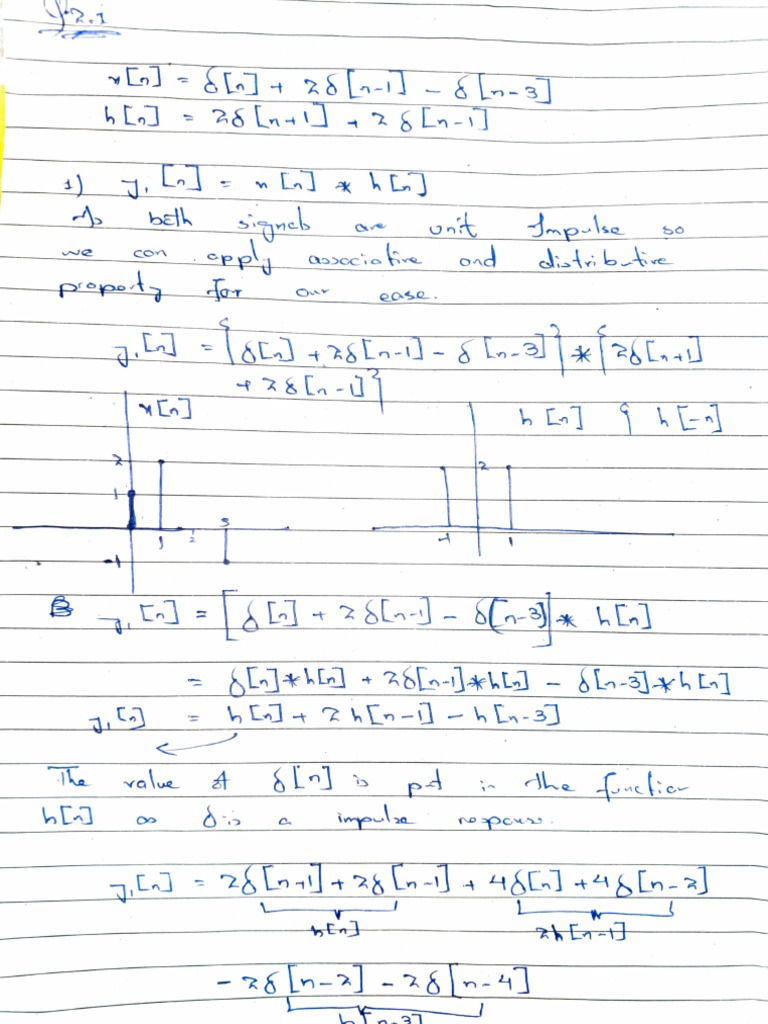 2.1
x[n] = δ[n] + 2δ[n-1] - δ[n-3]
h[n] = 2δ[n+1] + 2δ[n-1]
1) y₁[n] = x[n] * h[n]
As both signals are unit Impulse so
we can apply associative and distributive
property for our ease.
y₁[n] = {δ[n] + 2δ[n-1] - δ[n-3]} * {2δ[n+1]
+ 2δ[n-1]}
x[n] h[n] h[-n]
2 2
1
1 2 3 -1 1
-1
y₁[n] = [δ[n] + 2δ[n-1] - δ[n-3]] * h[n]
= δ[n]*h[n] + 2δ[n-1]*h[n] - δ[n-3]*h[n]
y₁[n] = h[n] + 2h[n-1] - h[n-3]
The value of δ[n] is put in the function
h[n] as δ is a impulse response.
y₁[n] = 2δ[n+1] + 2δ[n-1] + 4δ[n] + 4δ[n-2]
h[n] 2h[n-1]
-2δ[n-2] - 2δ[n-4]
h[n-3]